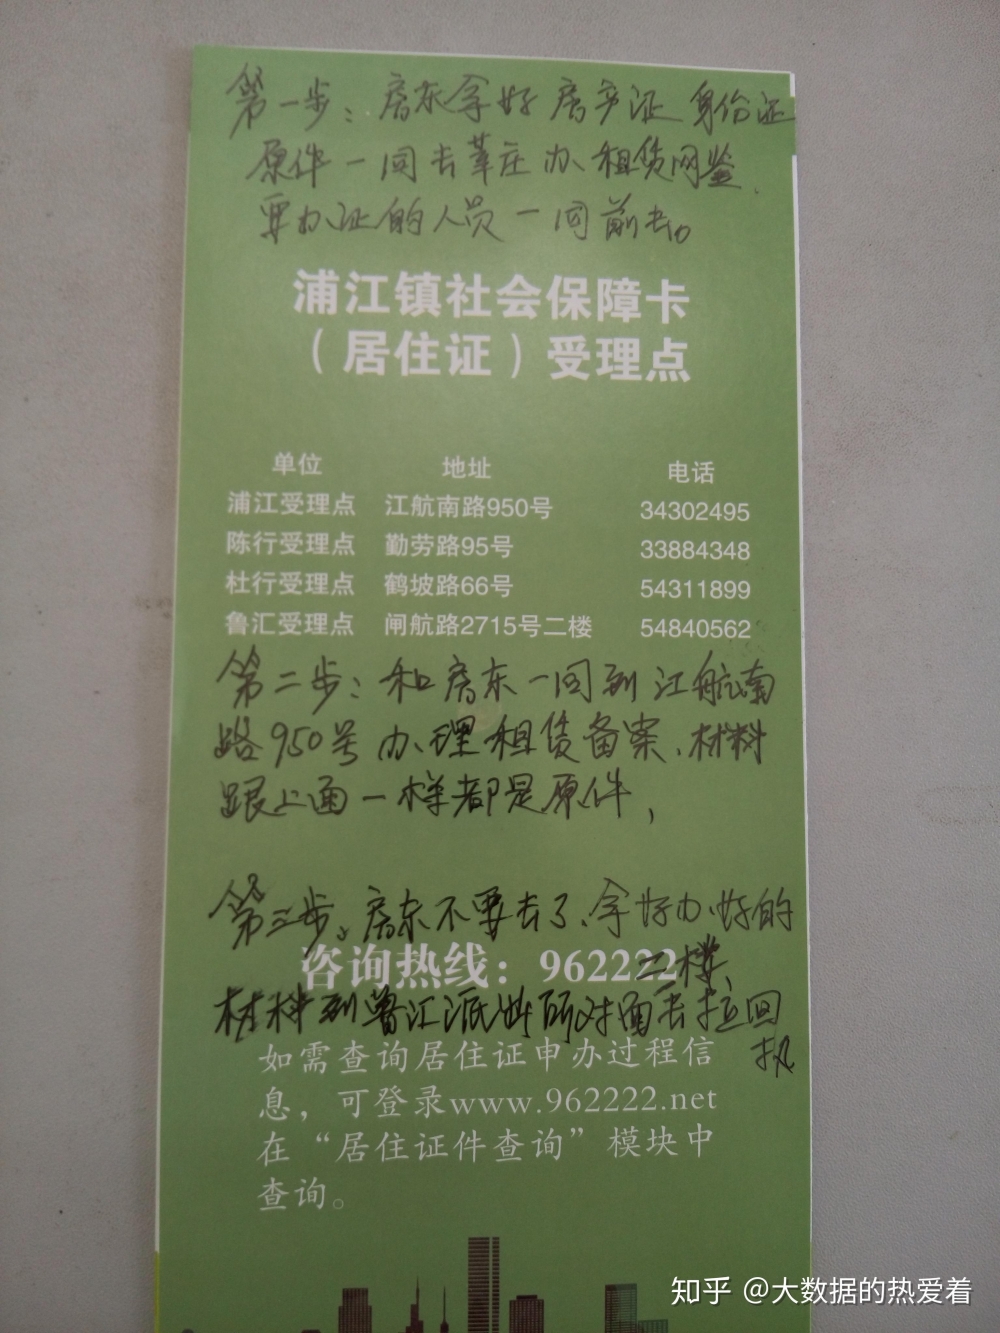 第一步：房东拿好房产证 身份证
原件一同去莘庄办租赁网鉴、
要办证的人员一同前去。
浦江镇社会保障卡
（居住证）受理点
单位 地址 电话
浦江受理点 江航南路950号 34302495
陈行受理点 勤劳路95号 33884348
杜行受理点 鹤坡路66号 54311899
鲁汇受理点 闸航路2715号二楼 54840562
第二步：和房东一同到江航南
路950号办理租赁备案、材料
跟上面一样都是原件，
第三步、房东不要去了、拿好办好的
咨询热线：962222
二楼
材料到鲁汇派出所对面去拉回
执
如需查询居住证申办过程信
息，可登录www.962222.net
在“居住证件查询”模块中
查询。
知乎 @大数据的热爱着